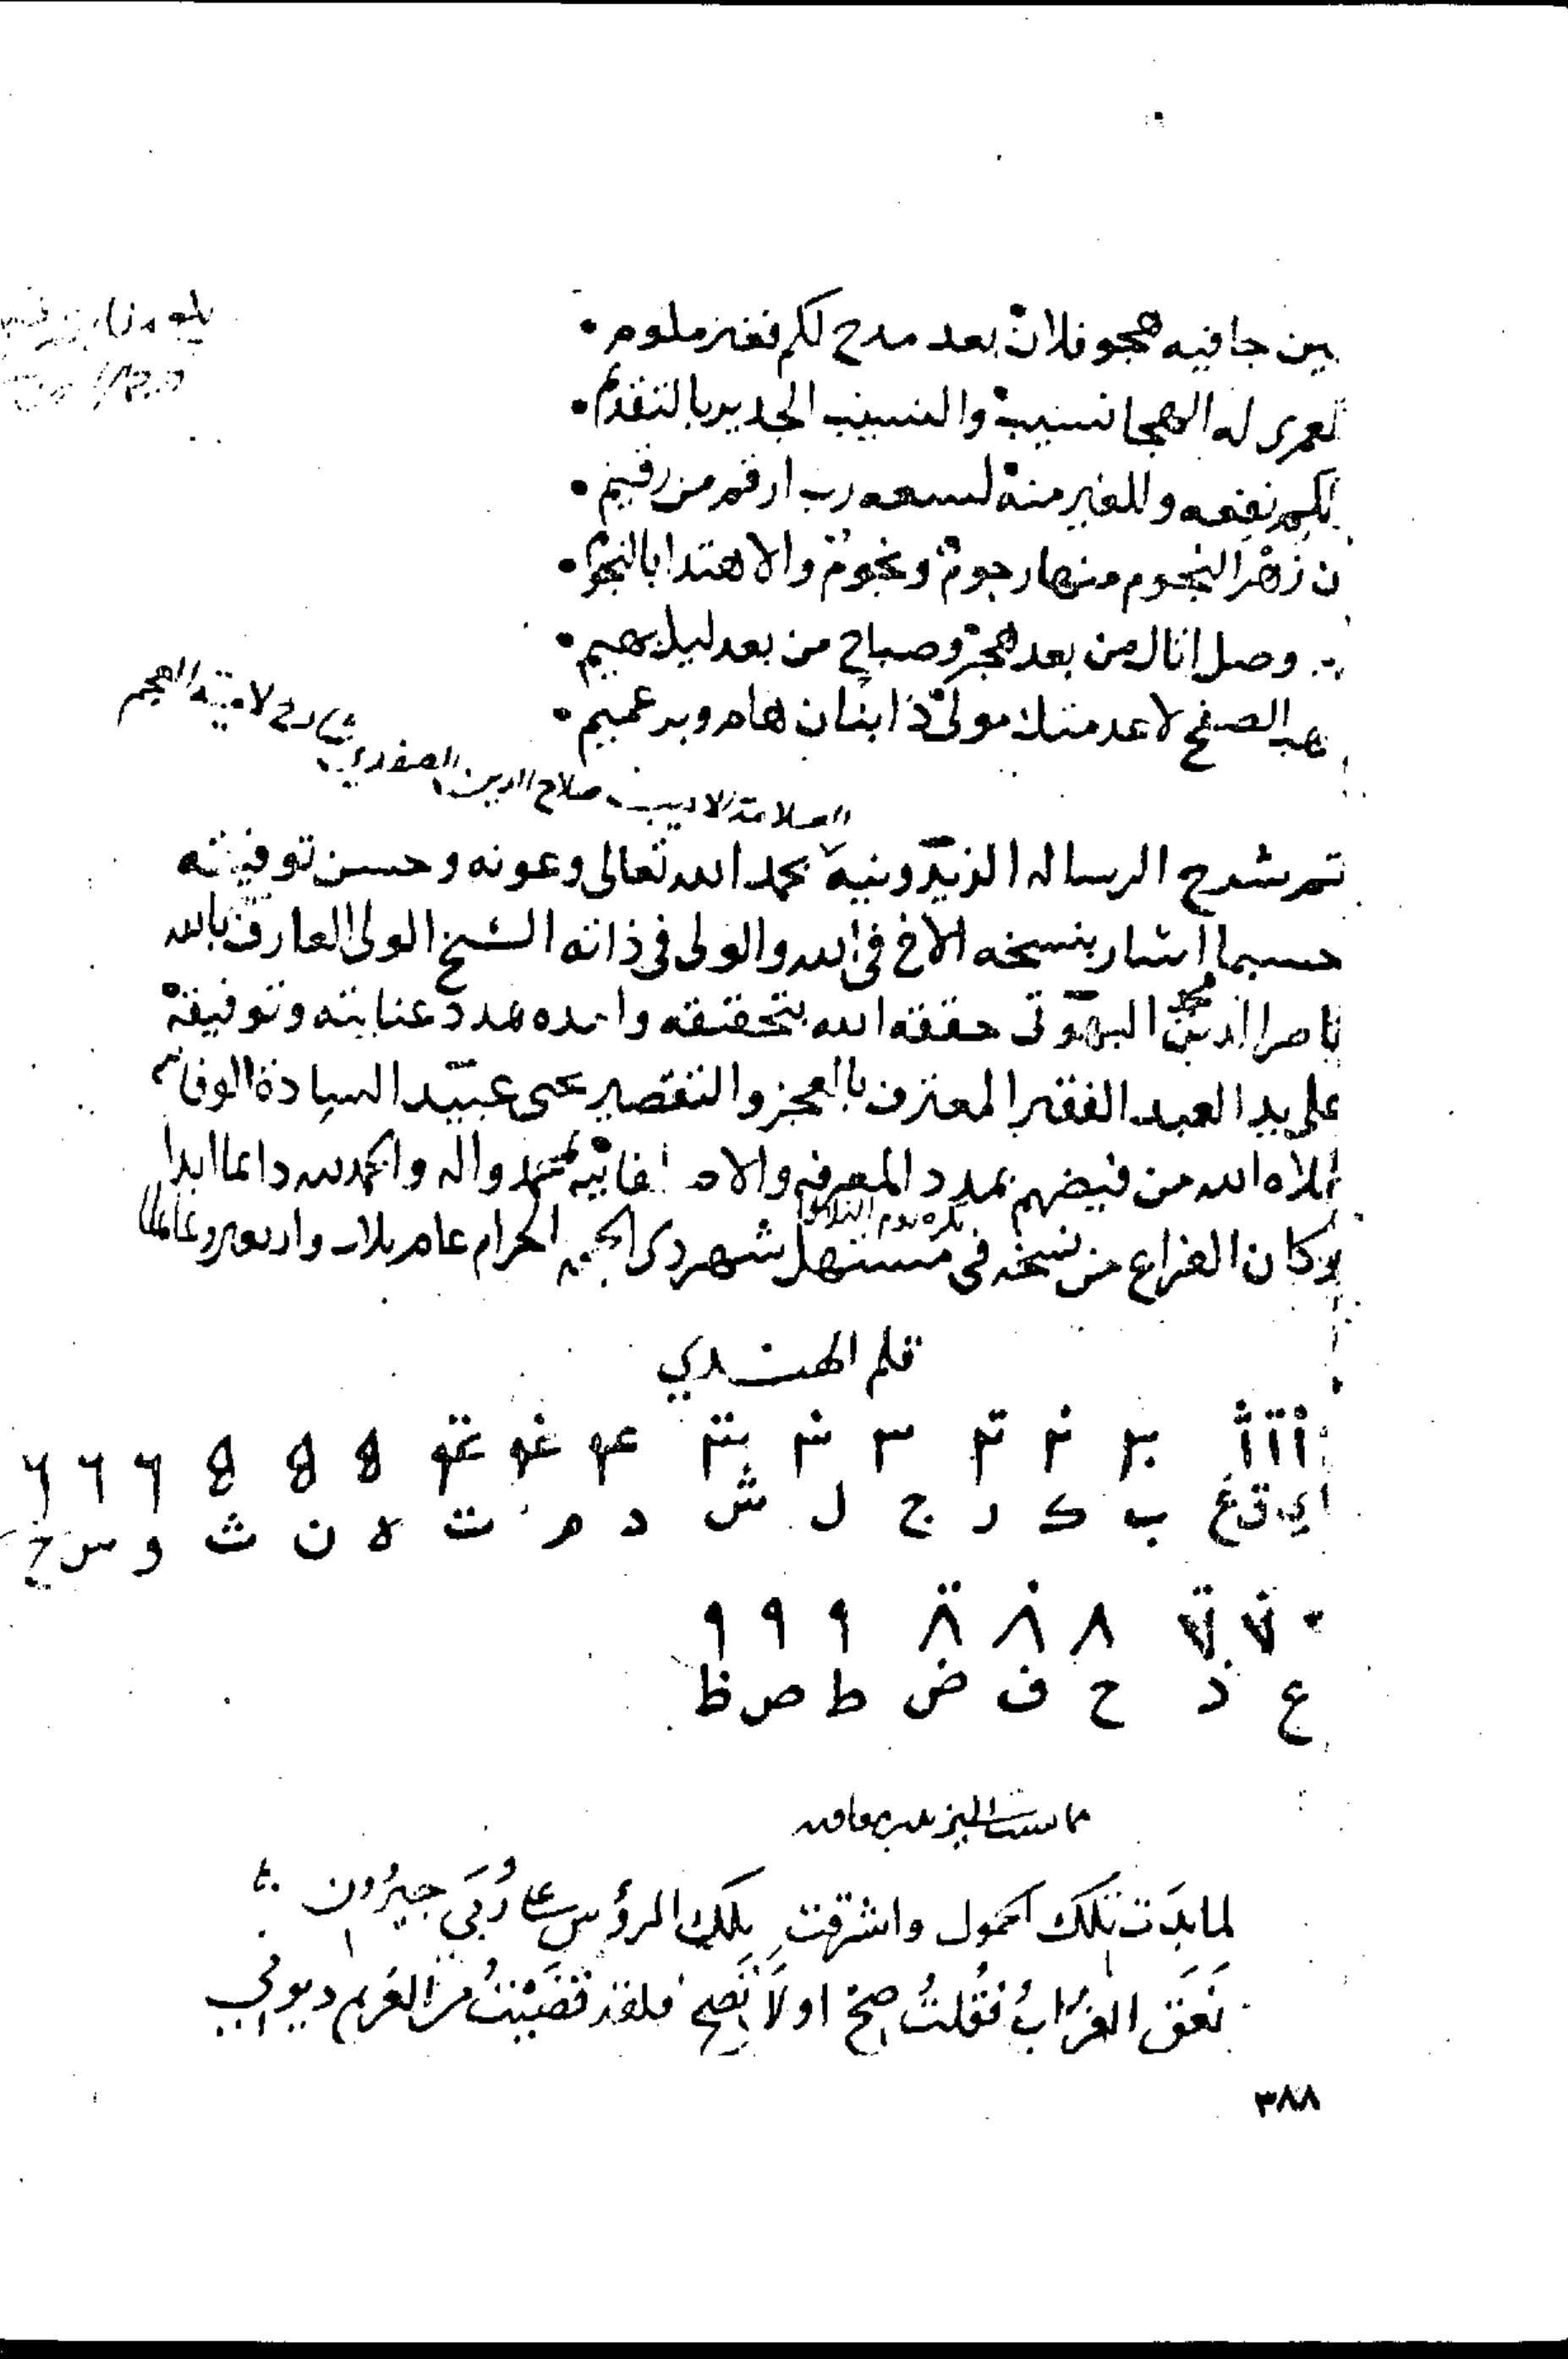 ين جافيه هجو فلان بعد مدح لكم فغير ملوم •
لعمرى له الهجا نسيب والنسيب الجدير بالتقديم •
لكم نفعه وللغير منه لسعه رب ارقم من رقيم •
ن زهر النجوم منها رجوم ونجوم والاهتدا بالنجوم •
وصل انال من بعد هجر وصباح من بعد ليل بهيم •
الصفح لا عدمتك مولى ذا بنان هام وبر عميم •
العلامة الاديب صلاح الدين الصفدي شارح لامية العجم
تم شرح الرساله الزيدونية بحمد الله تعالى وعونه وحسن توفيقه
حسبما اشار بنسخه الاخ فى الله والولى فى ذاته الشيخ الولى العارف بالله
ناصر الدين محمد البهوتى حققه الله بتحقيقه وامده بمدد عنايته وتوفيقه
على يد العبد الفقير المعترف بالعجز والتقصير يحيى عبيد السادة الوفائيه
املاه الله من فيضهم بمدد المعرفه بمحمد واله والحمد لله دائما ابدا
وكان الفراغ من نسخه فى مستهل شهر ذى الحجه الحرام عام
قلم الهندي
ا ي ق غ ب ك ر ج ل ش د م ت ه ن ث و س خ
٨ ٨ ٨ ٩ ٩ ٩
ع ذ ح ف ض ط ص ظ
لما بدَت تلك الحمول واشرقت تلك الرؤس على رُبَى جيرُون
نَعَق الغرابُ فقُلتُ صِح او لاَ تَصِح فلقد قضَيْتُ من الغريم ديوني
٣٨٨